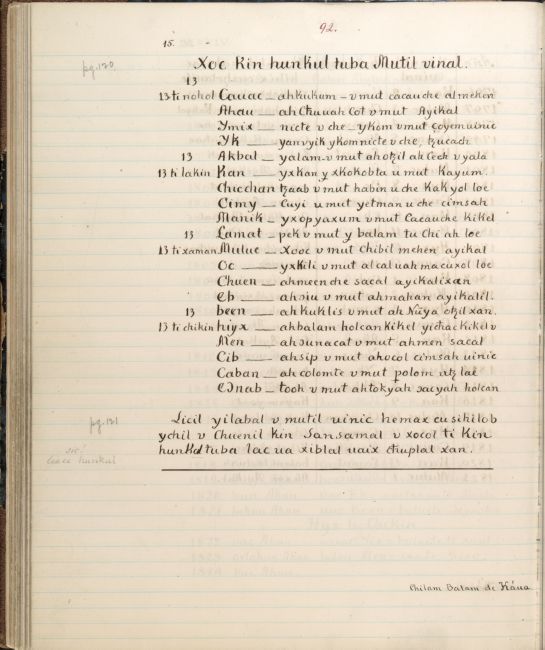 92.
15.
pg. 170.
Xoc Kin hunkul tuba Mutil vinal.
13
13 ti nohol Cauac — ah kukum – v mut cacauche almehen
Ahau — ah Chuuah Cot v mut Ayikal
Ymix — nicte v che – ykom v mut Çoyem uinic
Yk — yan v yik ykom nicte v che, tzucach
13 Akbal — yalam – v mut ah otzil ah Cech v yala
13 ti lakin Kan — yx kan yxKoKobta u mut Kayum.
Chicchan tzaab v mut habin u che Kak yol loc
Cimy — Cuyi u mut yetman u che cimsah
Manik — yx op yaxum v mut Cacauche Kikel
13 Lamat — pek v mut y balam tu Chi ah loc
13 ti xaman Muluc — Xooc v mut Chibil mehen ayikal
Oc — yxKili v mut al cal uah ma cuxol loc
Chuen — ahmeenche sacal ayikalixan
Eb — ah siu v mut ahmahan ayikalil.
13 been — ah kuklis v mut ah Nuya otzil xan.
13 ti chikin hiyx — ahbalam holcan Kikel yichac Kikel v
Men — ah ɔunacat v mut ahmen sacal
Cib — ah sip v mut ahocol cimsah uinic
Caban — ah colomte v mut polom atz lal
Eɔnab — tooh v mut ahtokyah sacyah holcan
pg. 171
Licil yilabal v mutil uinic hemax cu sihilob
ychil v Chuenil Kin Sansamal v xocol ti Kin
sic!
hunKul tuba lac ua xiblal uaix chuplal xan.
hunkul
Chilam Balam de Káua